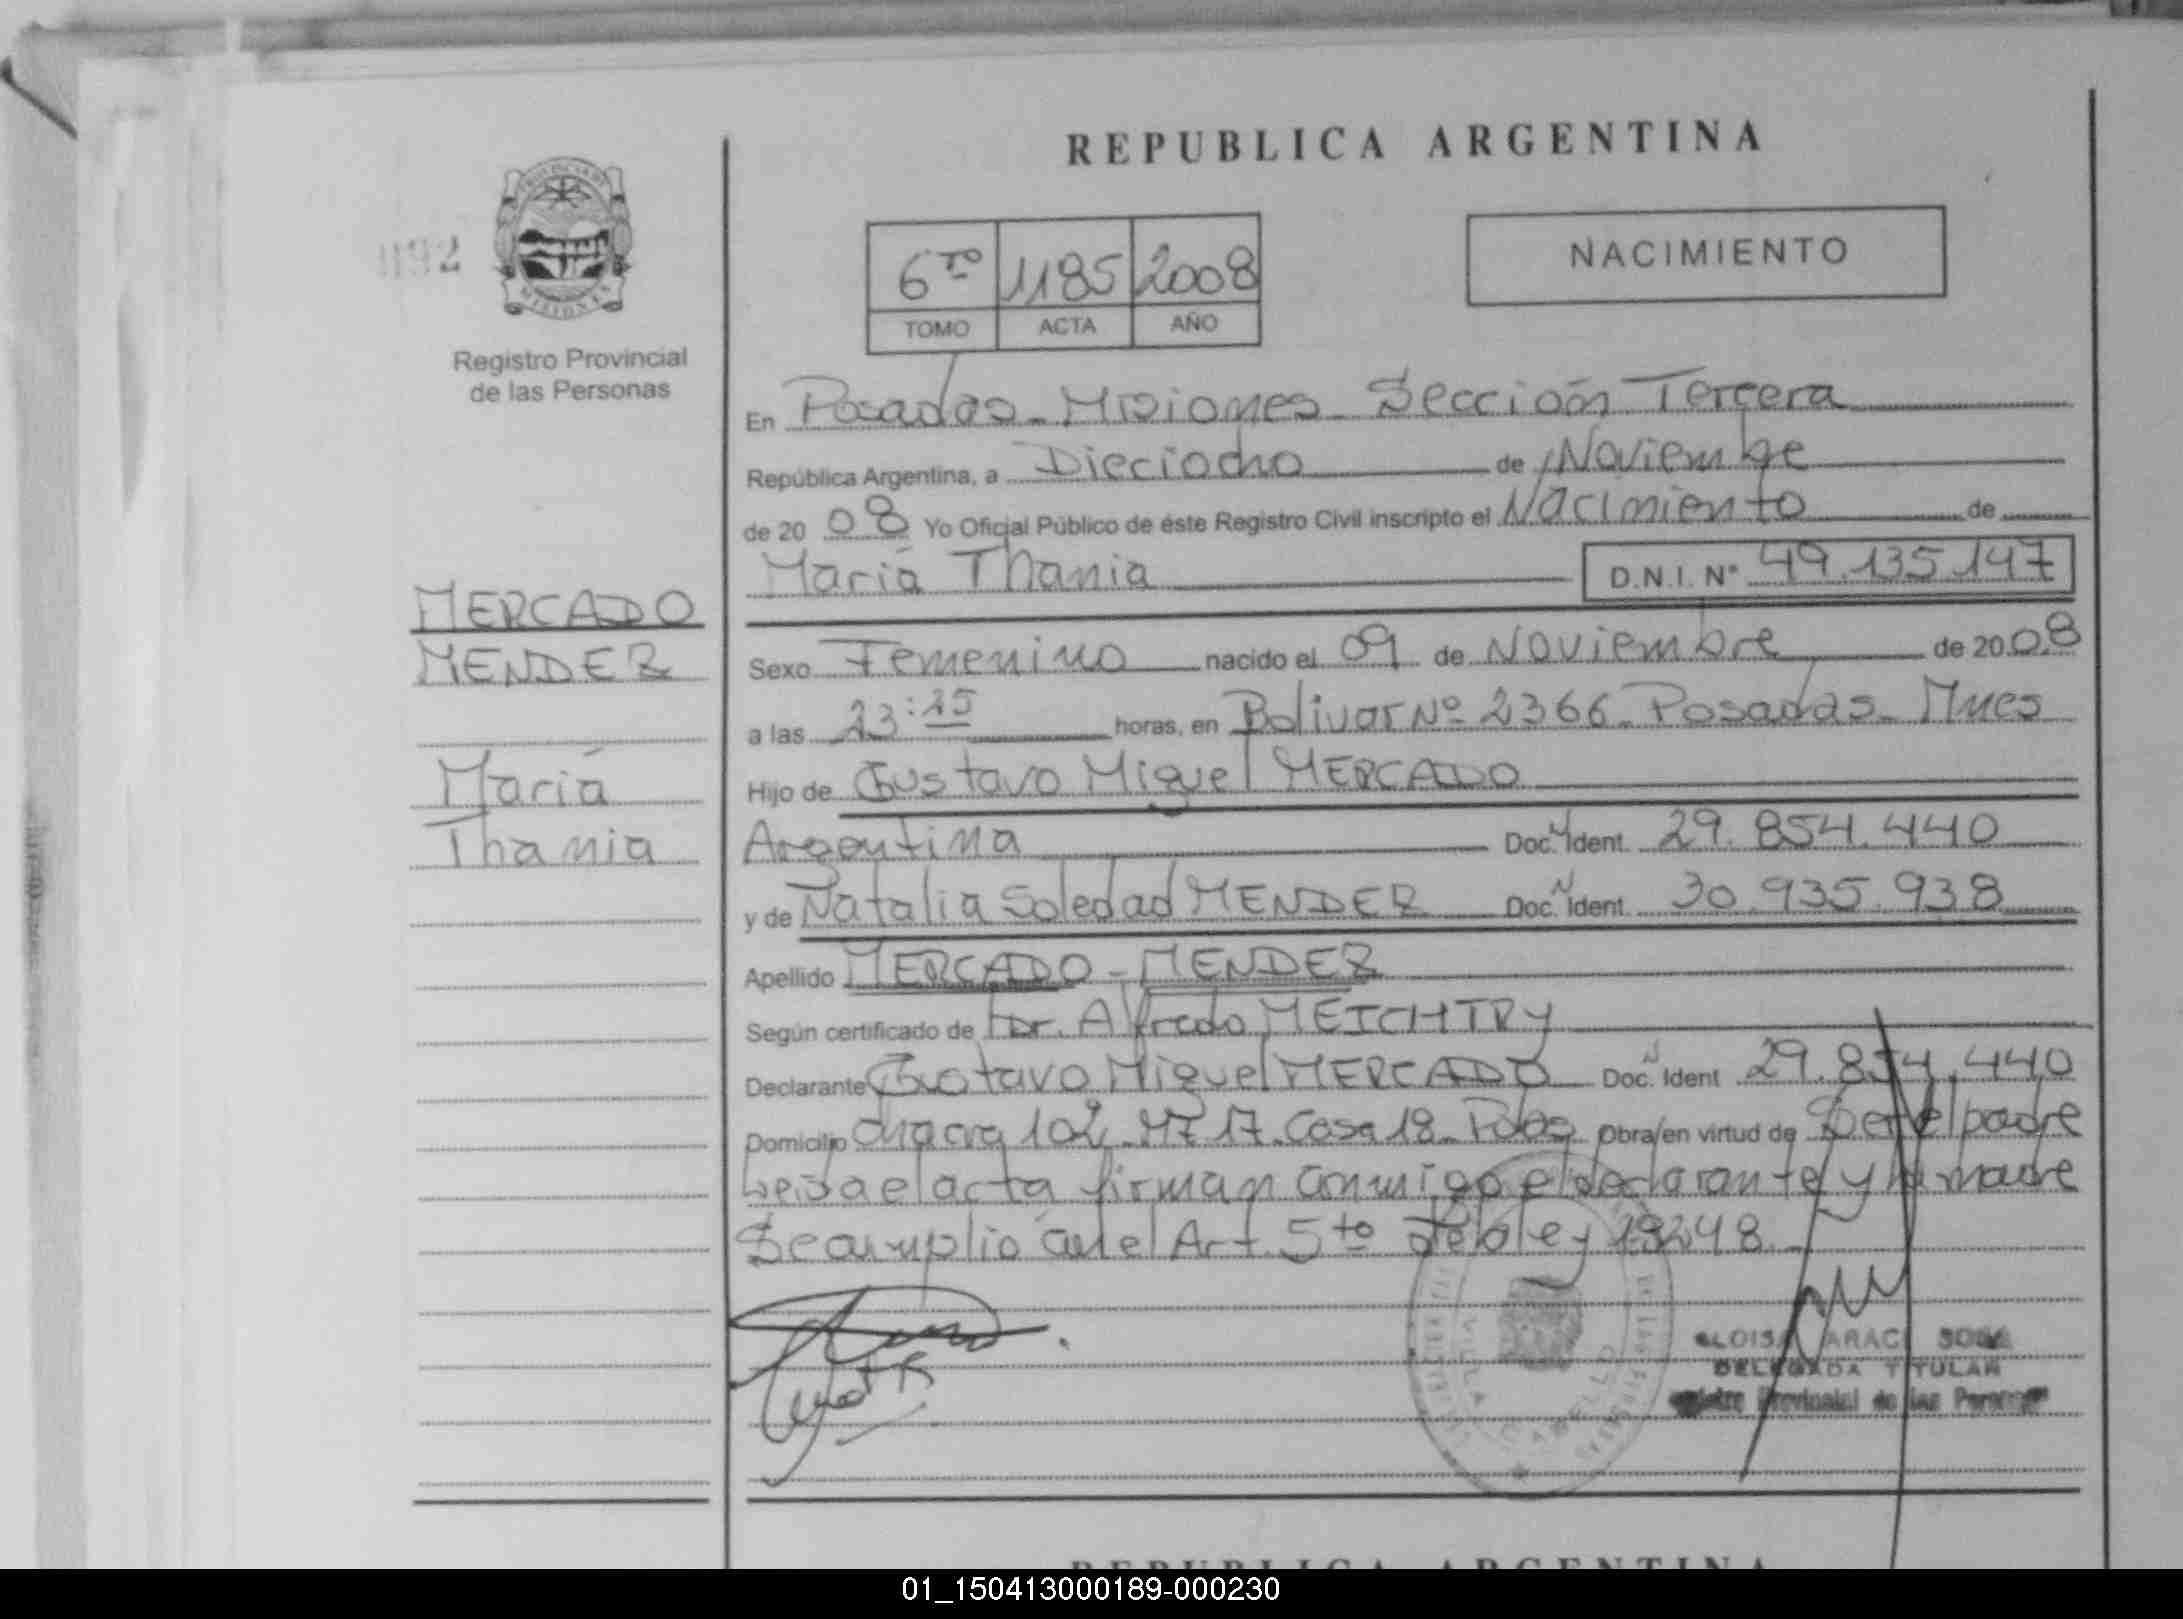 REPUBLICA ARGENTINA
PROVINCIA DE
MISIONES
Registro Provincial
de las Personas
6to 1185 2008
TOMO ACTA AÑO
NACIMIENTO
En Posadas - Misiones - Sección Tercera
República Argentina, a Dieciocho de Noviembre
de 2008 Yo Oficial Público de éste Registro Civil inscripto el Nacimiento de
María Thania D.N.I. N° 49.135.147
MERCADO
MENDEZ
María
Thania
Sexo Femenino nacido el 09 de Noviembre de 2008
a las 23:25 horas, en Bolivar Nº 2366 - Posadas - Mnes
Hijo de Gustavo Miguel MERCADO
Argentina Doc. Ident. 29.854.440
y de Natalia Soledad MENDEZ Doc. Ident. 30.935.938
Apellido MERCADO - MENDEZ
Según certificado de Dr. Alfredo MEICHTRY
Declarante Gustavo Miguel MERCADO Doc. Ident 29.854.440
Domicilio Chacra 102 Mz 17 Casa 18 - Pdas Obra en virtud de Ser el padre
Leida el acta firman conmigo el declarante y la madre
Se cumplió con el Art. 5to de la ley 18248.
ARACI SOSA
DELEGADA TITULAR
Provincial de las Personas
REPUBLICA ARGENTINA
01_150413000189-000230